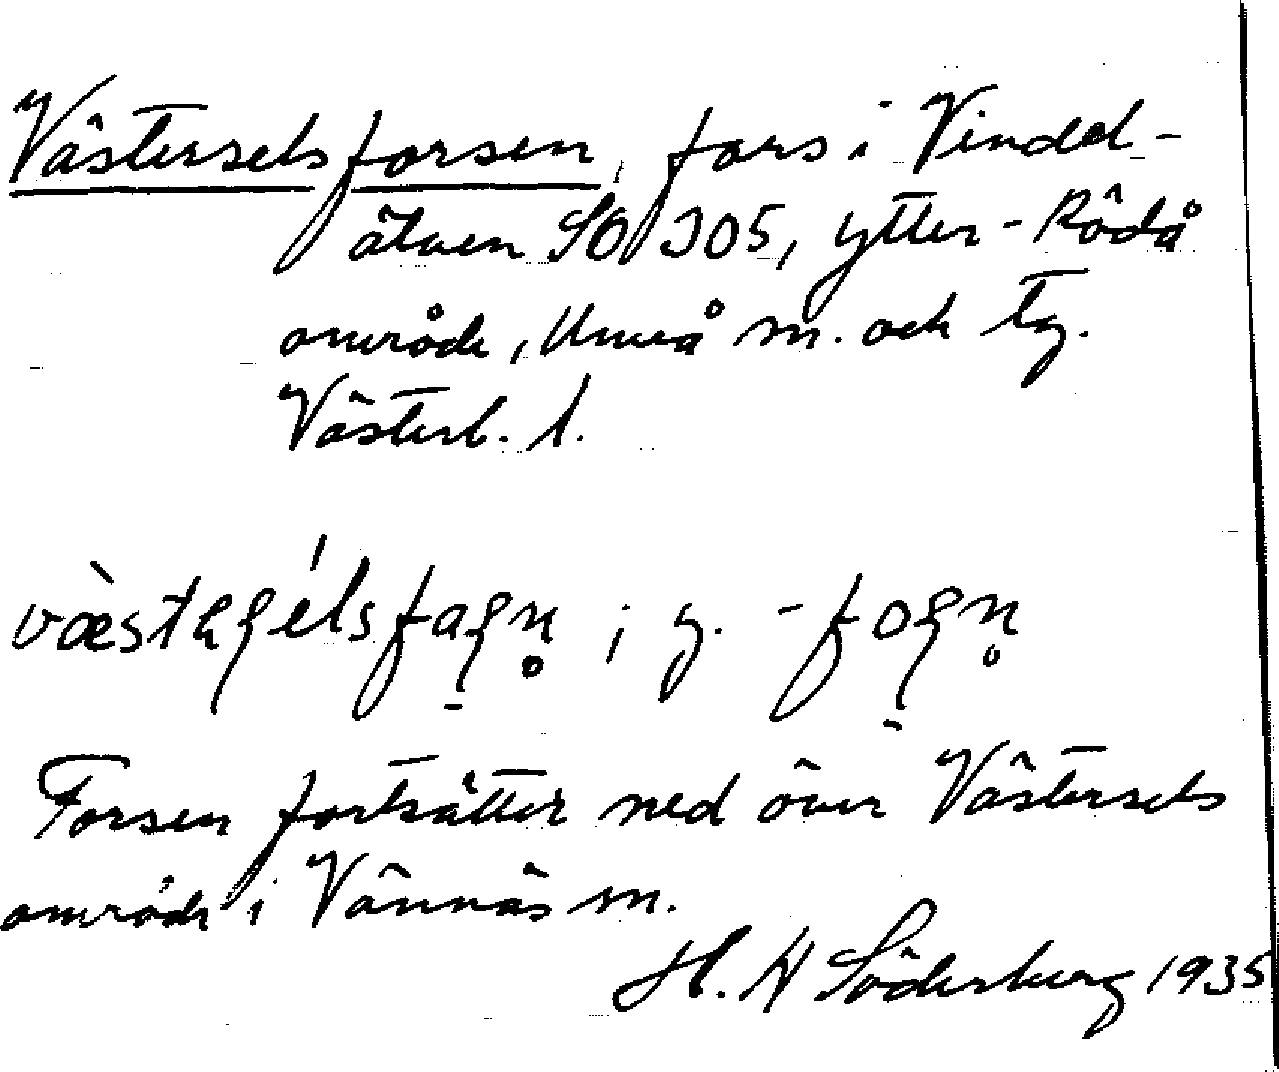 Västerselsforsen, fors i Vindel-
älven SO 305, ytter-Rödå
område, Umeå sn. och tg.
Västerb. l.
; g.
Forsen fortsätter ned över Västersels
område i Vännäs sn.
H. W Söderberg 1935